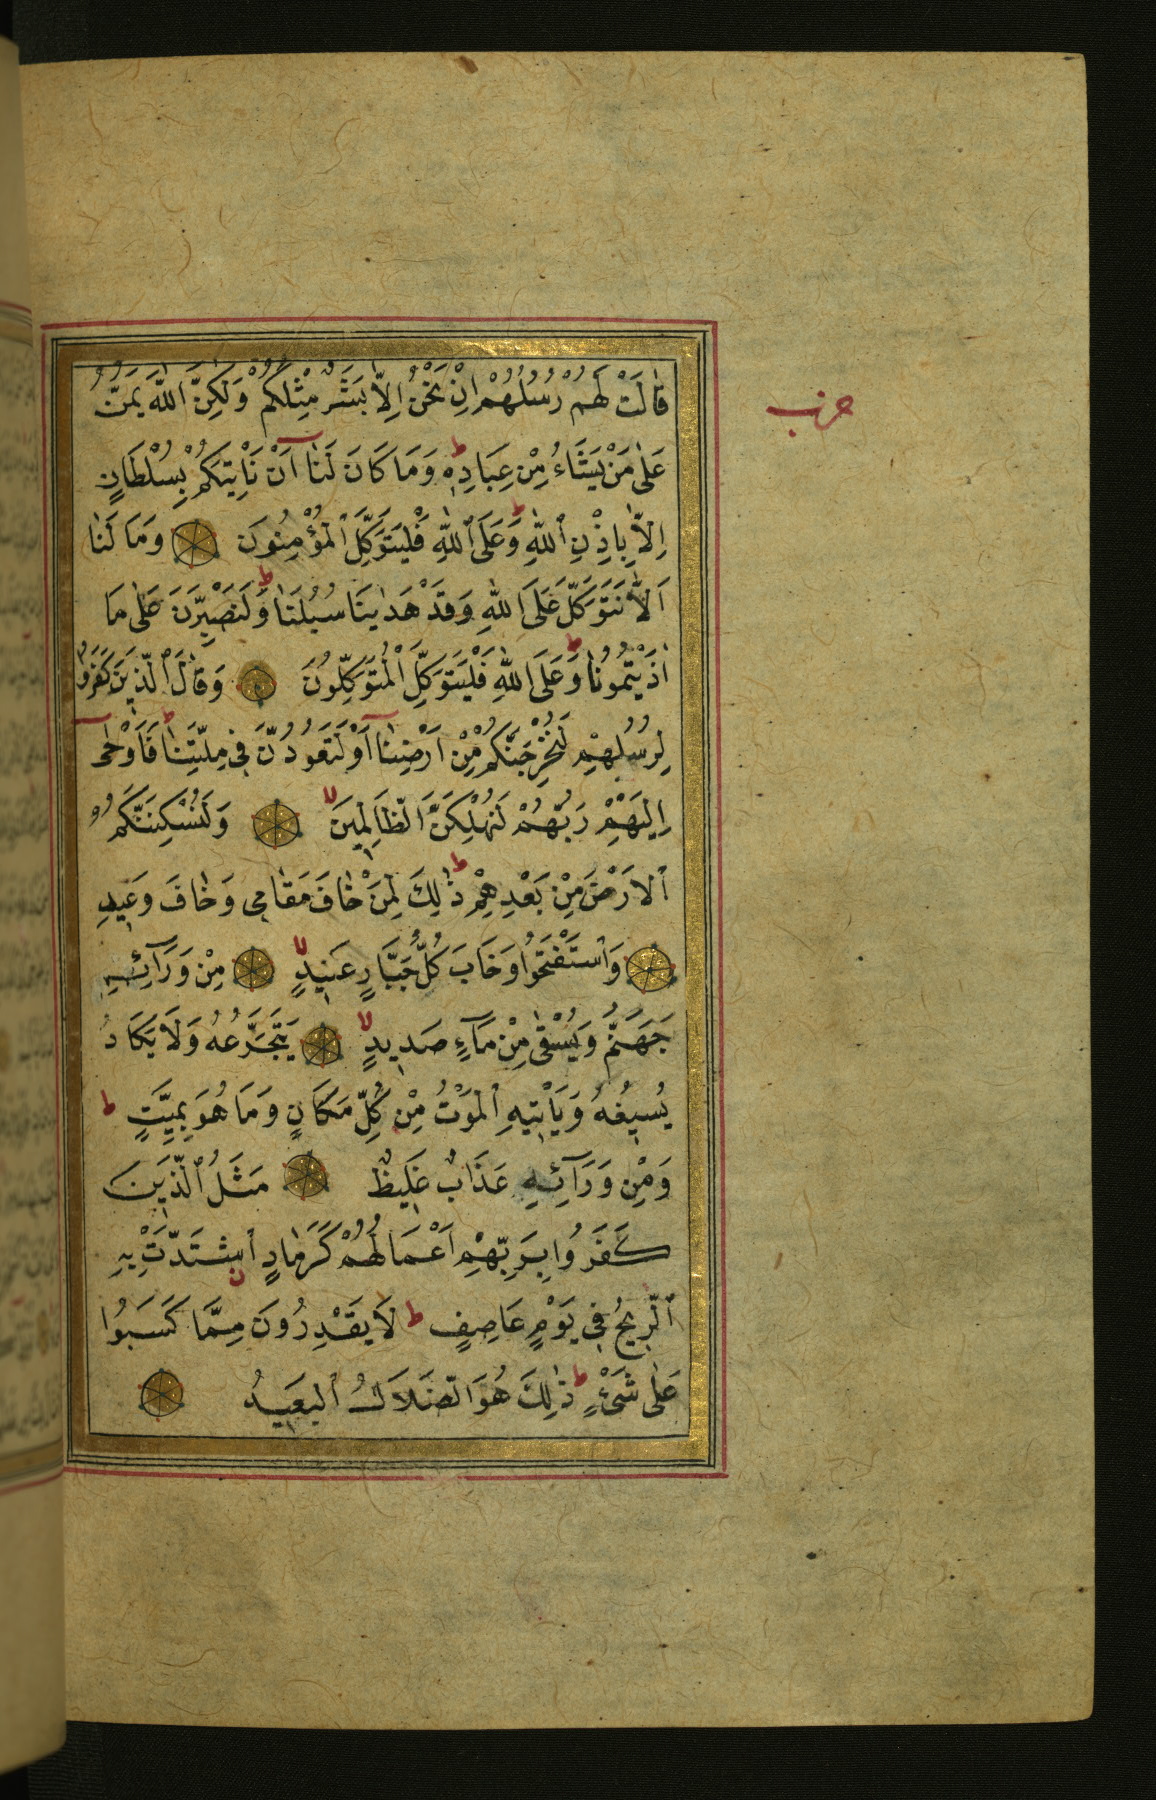 حزب
قَالَتْ لَهُمْ رُسُلُهُمْ اِنْ نَحْنُ اِلَّا بَشَرٌ مِثْلُكُمْ وَلٰكِنَّ اللّٰهَ يَمُنُّ
عَلٰى مَنْ يَشَاءُ مِنْ عِبَادِهٖ ط وَمَا كَانَ لَنَا اَنْ نَاْتِيَكُمْ بِسُلْطَانٍ
اِلَّا بِاِذْنِ اللّٰهِ ط وَعَلَى اللّٰهِ فَلْيَتَوَكَّلِ الْمُؤْمِنُونَ وَمَا لَنَا
اَلَّا نَتَوَكَّلَ عَلَى اللّٰهِ وَقَدْ هَدٰينَا سُبُلَنَا ط وَلَنَصْبِرَنَّ عَلٰى مَا
اٰذَيْتُمُونَا ط وَعَلَى اللّٰهِ فَلْيَتَوَكَّلِ الْمُتَوَكِّلُونَ وَقَالَ الَّذِينَ كَفَرُوا
لِرُسُلِهِمْ لَنُخْرِجَنَّكُمْ مِنْ اَرْضِنَا اَوْ لَتَعُودُنَّ فِي مِلَّتِنَا ط فَاَوْحٰى
اِلَيْهِمْ رَبُّهُمْ لَنُهْلِكَنَّ الظَّالِمِينَ لا وَلَنُسْكِنَنَّكُمُ
الْارَضَ مِنْ بَعْدِهِمْ ط ذٰلِكَ لِمَنْ خَافَ مَقَامِي وَخَافَ وَعِيدِ
وَاسْتَفْتَحُوا وَخَابَ كُلُّ جَبَّارٍ عَنِيدٍ لا مِنْ وَرَآئِهِ
جَهَنَّمُ وَيُسْقٰى مِنْ مَآءٍ صَدِيدٍ لا يَتَجَرَّعُهُ وَلَا يَكَادُ
يُسِيغُهُ وَيَاْتِيهِ الْمَوْتُ مِنْ كُلِّ مَكَانٍ وَمَا هُوَ بِمَيِّتٍ ط
وَمِنْ وَرَآئِهِ عَذَابٌ غَلِيظٌ مَثَلُ الَّذِينَ
كَفَرُوا بِرَبِّهِمْ اَعْمَالُهُمْ كَرَمَادٍ اشْتَدَّتْ بِهِ
الرِّيحُ فِي يَوْمٍ عَاصِفٍ ط لَا يَقْدِرُونَ مِمَّا كَسَبُوا
عَلٰى شَيْءٍ ط ذٰلِكَ هُوَ الضَّلَالُ الْبَعِيدُ